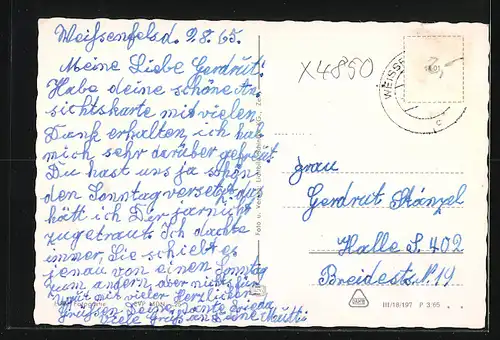 Weißenfels d. 28. 65.
Meine Liebe Gerdrut!
Habe deine schöne An-
sichtskarte mit vielen
Dank erhalten, ich hab
mich sehr darüber gefreut
Du hast uns ja schön
den Sonntag versetzt,
hätt ich Dir jarnicht
zugetraut. Ich dachte
immer, Sie schiebt es
jenau von einen Sonntag
zum andern, aber nichts für
gut mit vieler Herzlichen
Grüßen Deine Tante
Viele Grüße an Deine Mutti
X4850
WEISSE
c
Foto u. Verlag
Frau
Gerdrut Stänzel
Halle S. 402
Breidestr. N. 19
III/18/197 P 3/65